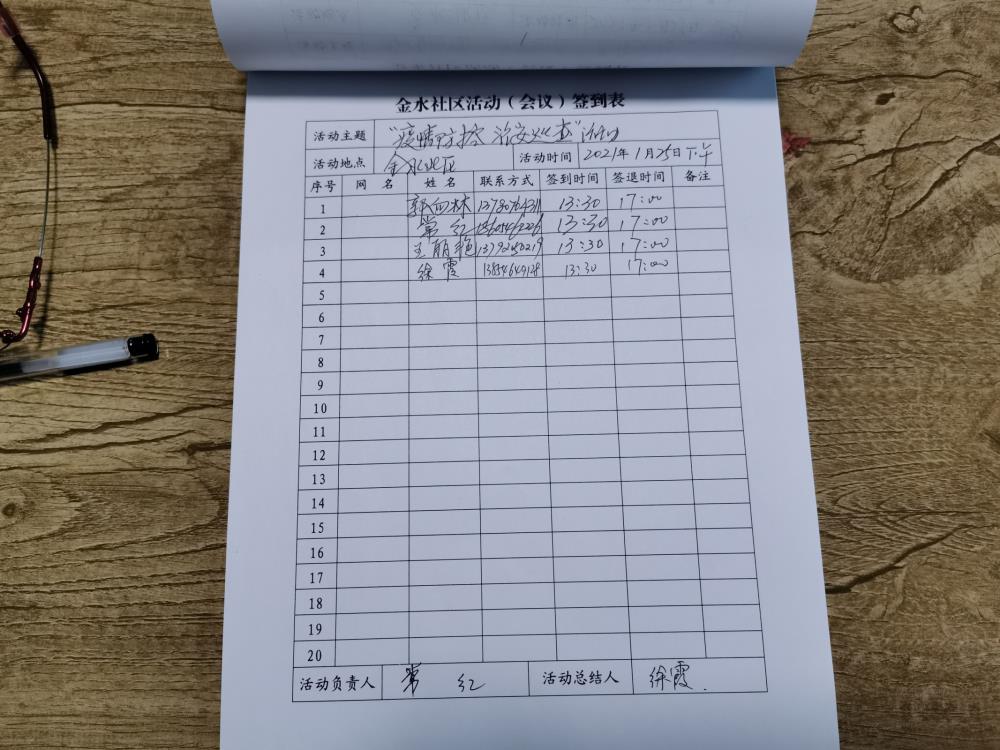 金水社区活动（会议）签到表
活动主题 “疫情防控 治安巡查”活动
活动地点 金水社区 活动时间 2021年1月25日下午
序号 网 名 姓 名 联系方式 签到时间 签退时间 备注
1 林 13:30 17:00
2 常红 13:30 17:00
3 王丽艳 13:30 17:00
4 徐霞 13:30 17:00
5
6
7
8
9
10
11
12
13
14
15
16
17
18
19
20
活动负责人 常 红 活动总结人 徐霞.